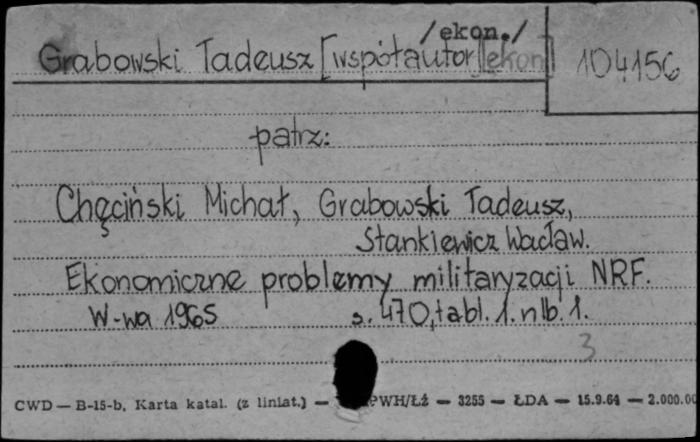 /ekon./
Grabowski Tadeusz [współautor] [ekon] 104156
patrz:
Chęciński Michał, Grabowski Tadeusz,
Stankiewicz Wacław.
Ekonomiczne problemy militaryzacji NRF.
W-wa 1965 s. 470, tabl. 1. nlb. 1.
3
CWD — B-15-b, Karta katal. (z liniat.) — PWH/Łź — 3255 — ŁDA — 15.9.64 — 2.000.00